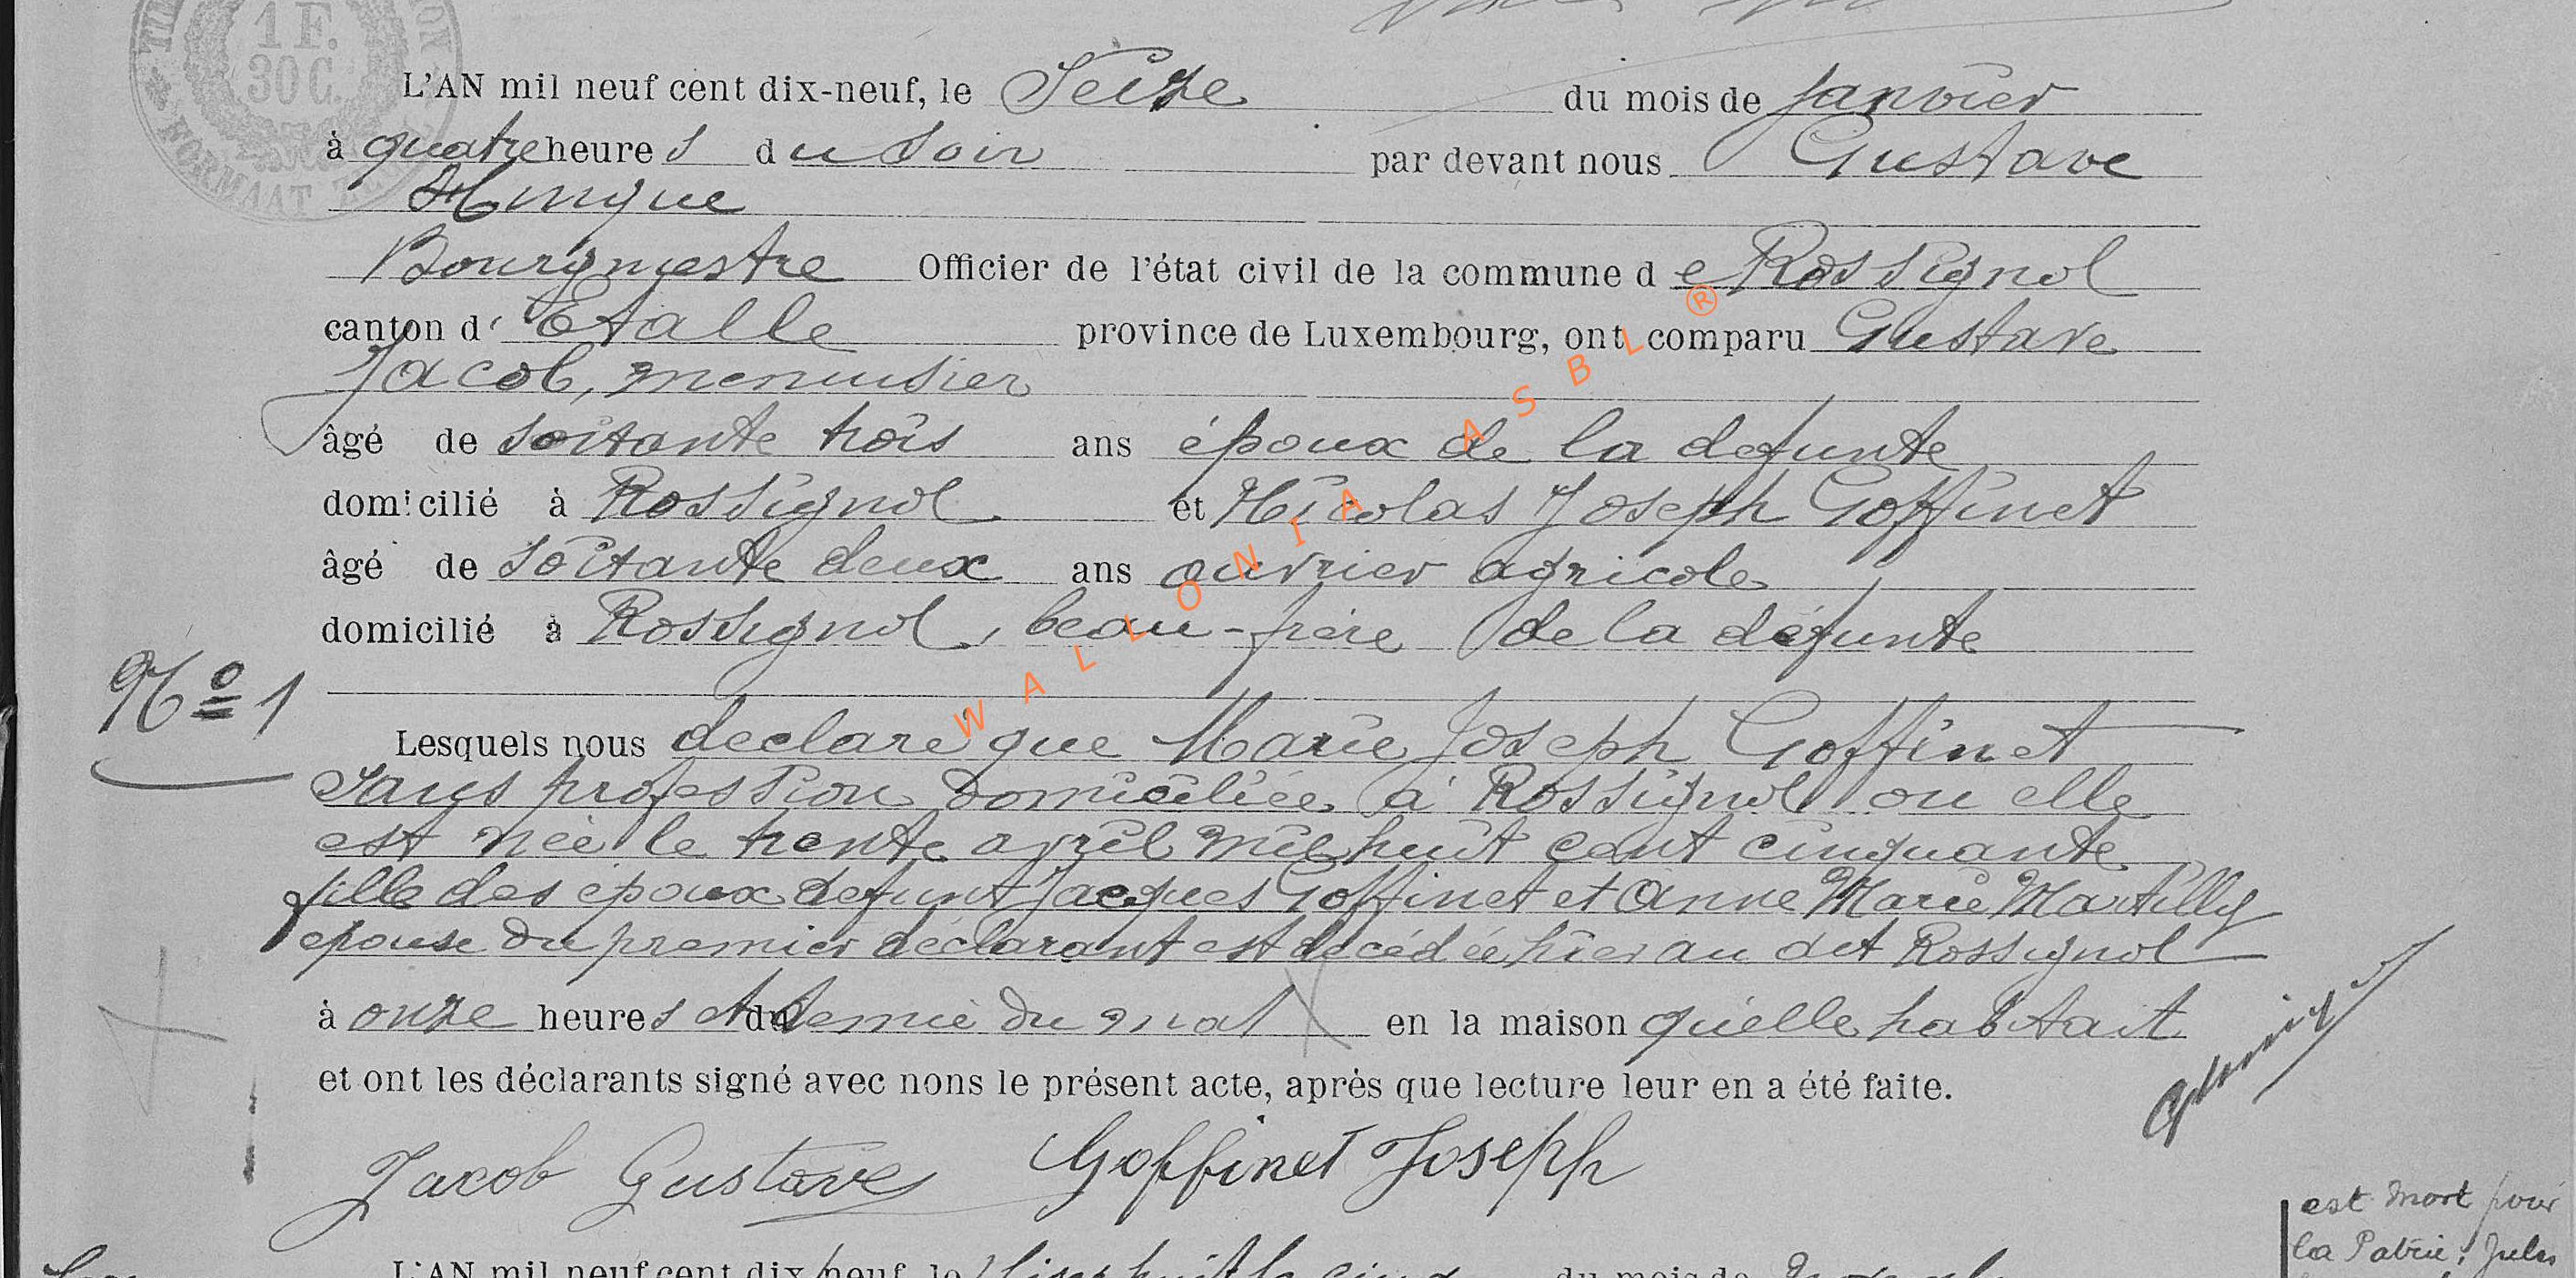 1 F.
30 C.
NORMAAT
L'AN mil neuf cent dix-neuf, le Seize du mois de janvier
à quatre heures du soir par devant nous Gustave
Hinque
Bourgmestre Officier de l'état civil de la commune de Rossignol
canton d' Etalle province de Luxembourg, ont comparu Gustave
Jacob, menuisier
âgé de soixante trois ans époux de la defunte
domicilié à Rossignol et Nicolas Joseph Goffinet
âgé de soixante deux ans ouvrier agricole
domicilié à Rossignol, beau-frère de la défunte
No 1
Lesquels nous declaré que Marie Joseph Goffinet
sans profession domiciliée à Rossignol ou elle
est née le trente avril mil huit cent cinquante
fille des époux defunt Jacques Goffinet et Anne Marie Martilly
epouse du premier déclarant est décédée hier au dit Rossignol
à onze heures et demie du mat en la maison qu'elle habitait
et ont les déclarants signé avec nons le présent acte, après que lecture leur en a été faite.
Jacob Gustave Goffinet Joseph
est mort pour
la Patrie, Jules
L'AN mil neuf cent dix neuf, le du mois de
WALLONIA ASBL ®